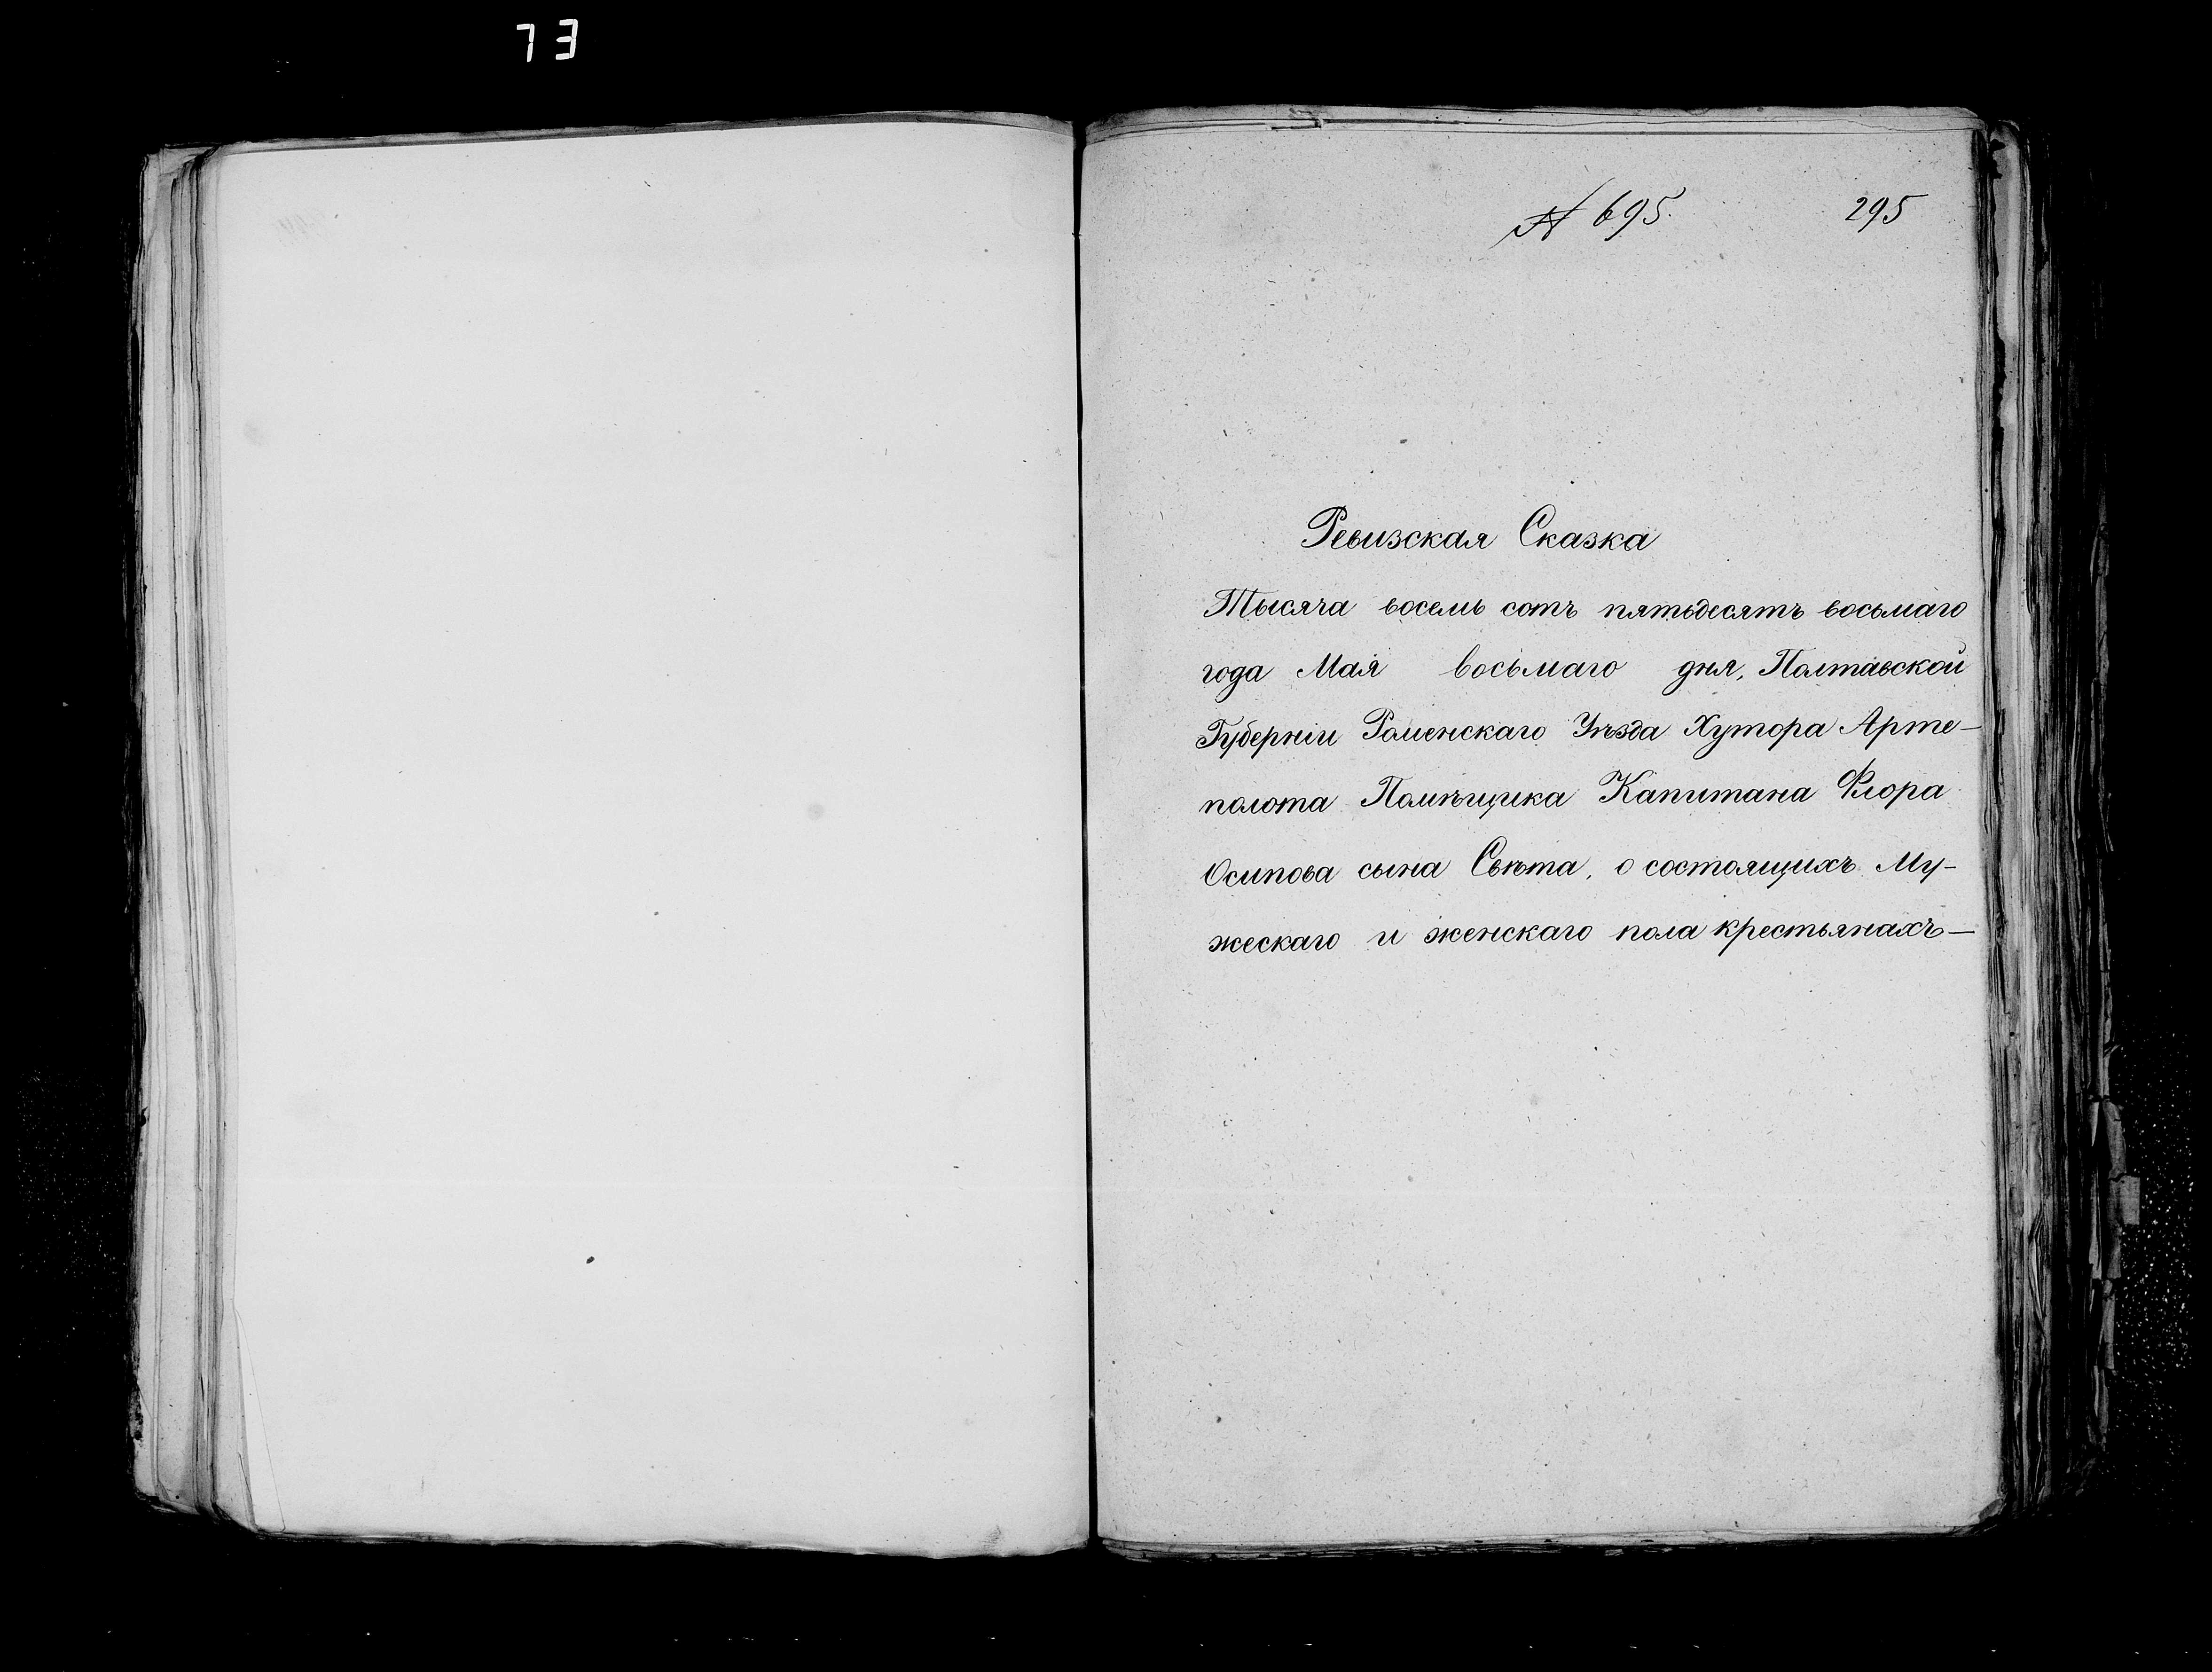 73
№ 695. 295
Ревизская Сказка
Тысяча восемь сотъ пятьдесятъ восьмаго
года Мая восьмаго дня, Полтавской
Губерніи Роменскаго Уѣзда Хутора Арте-
полота Помѣщика Капитана Флора
Осипова сына Свѣта, о состоящихъ Му-
жескаго и женскаго пола крестьянахъ—